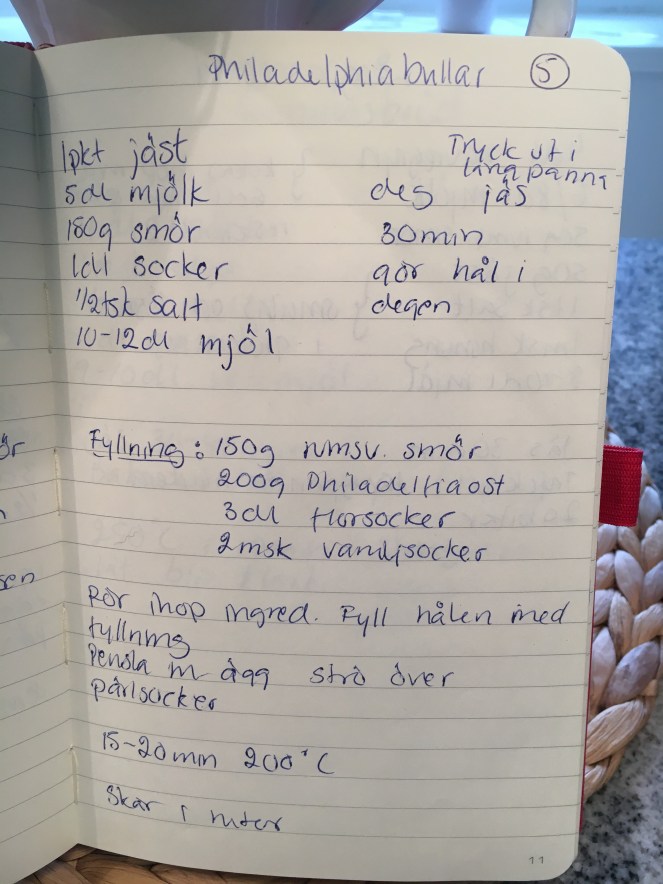 Philadelphiabullar ⑤
1pkt jäst
5dl mjölk
150g smör
1dl socker
1/2tsk salt
10-12dl mjöl
Tryck ut i
långpanna
deg jäs
30min
gör hål i
degen
Fyllning: 150g rumsv. smör
200g Philadelfiaost
3dl florsocker
2msk vaniljsocker
Rör ihop ingred. Fyll hålen med
fyllning
Pensla m ägg strö över
pärlsocker
15-20min 200°C
Skär i rutor
ör
sen
11